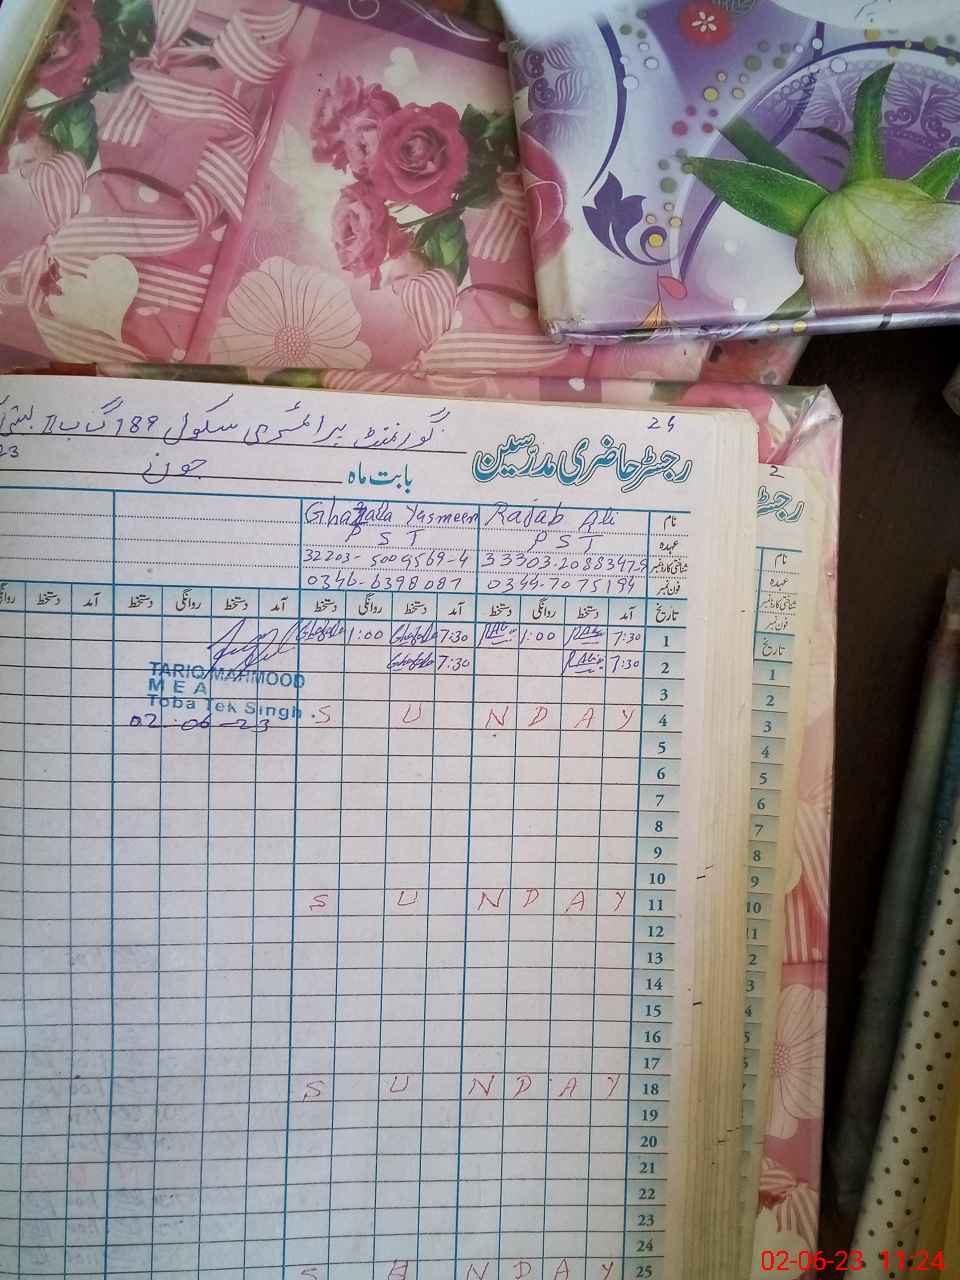 24
گورنمنٹ پرائمری سکول 189 گ ب II
رجسٹر حاضری مدرسین
بابت ماہ جون
23
نام Rajab Ali Ghazala Yasmeen
عہدہ PST PST
شناختی کارڈ نمبر 33303-2088347-9 32203-5009569-4
فون نمبر 0344-7075194 0346-6398087
تاریخ آمد دستخط روانگی دستخط آمد دستخط روانگی دستخط آمد دستخط روانگی دستخط آمد دستخط روانگی
1 7:30 R.Ali 1:00 R.Ali 7:30 Ghazala 1:00 Ghazala
2 7:30 R.Ali 7:30 Ghazala
TARIQ MAHMOOD
M E A
Toba Tek Singh
02-06-23
3
4 S U N D A Y
5
6
7
8
9
10
11 S U N D A Y
12
13
14
15
16
17
18 S U N D A Y
19
20
21
22
23
24
25 S U N D A Y
2
رجسٹر
نام
عہدہ
شناختی کارڈ نمبر
فون نمبر
تاریخ
1
2
3
4
5
6
7
8
9
10
11
2
3
4
5
02-06-23 11:24